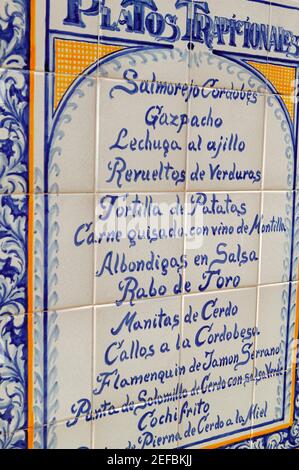 Platos Tradicionales
Salmorejo Cordobés
Gazpacho
Lechuga al ajillo
Revueltos de Verduras
Tortilla de Patatas
Carne guisada con vino de Montilla
Albondigas en Salsa
Rabo de Toro
Manitas de Cerdo
Callos a la Cordobesa
Flamenquin de Jamon Serrano
Punta de Solomillo de Cerdo con salsa Verde
Cochifrito
de Pierna de Cerdo a la Miel
alamy
Image ID: 2EFBKJJ
www.alamy.com